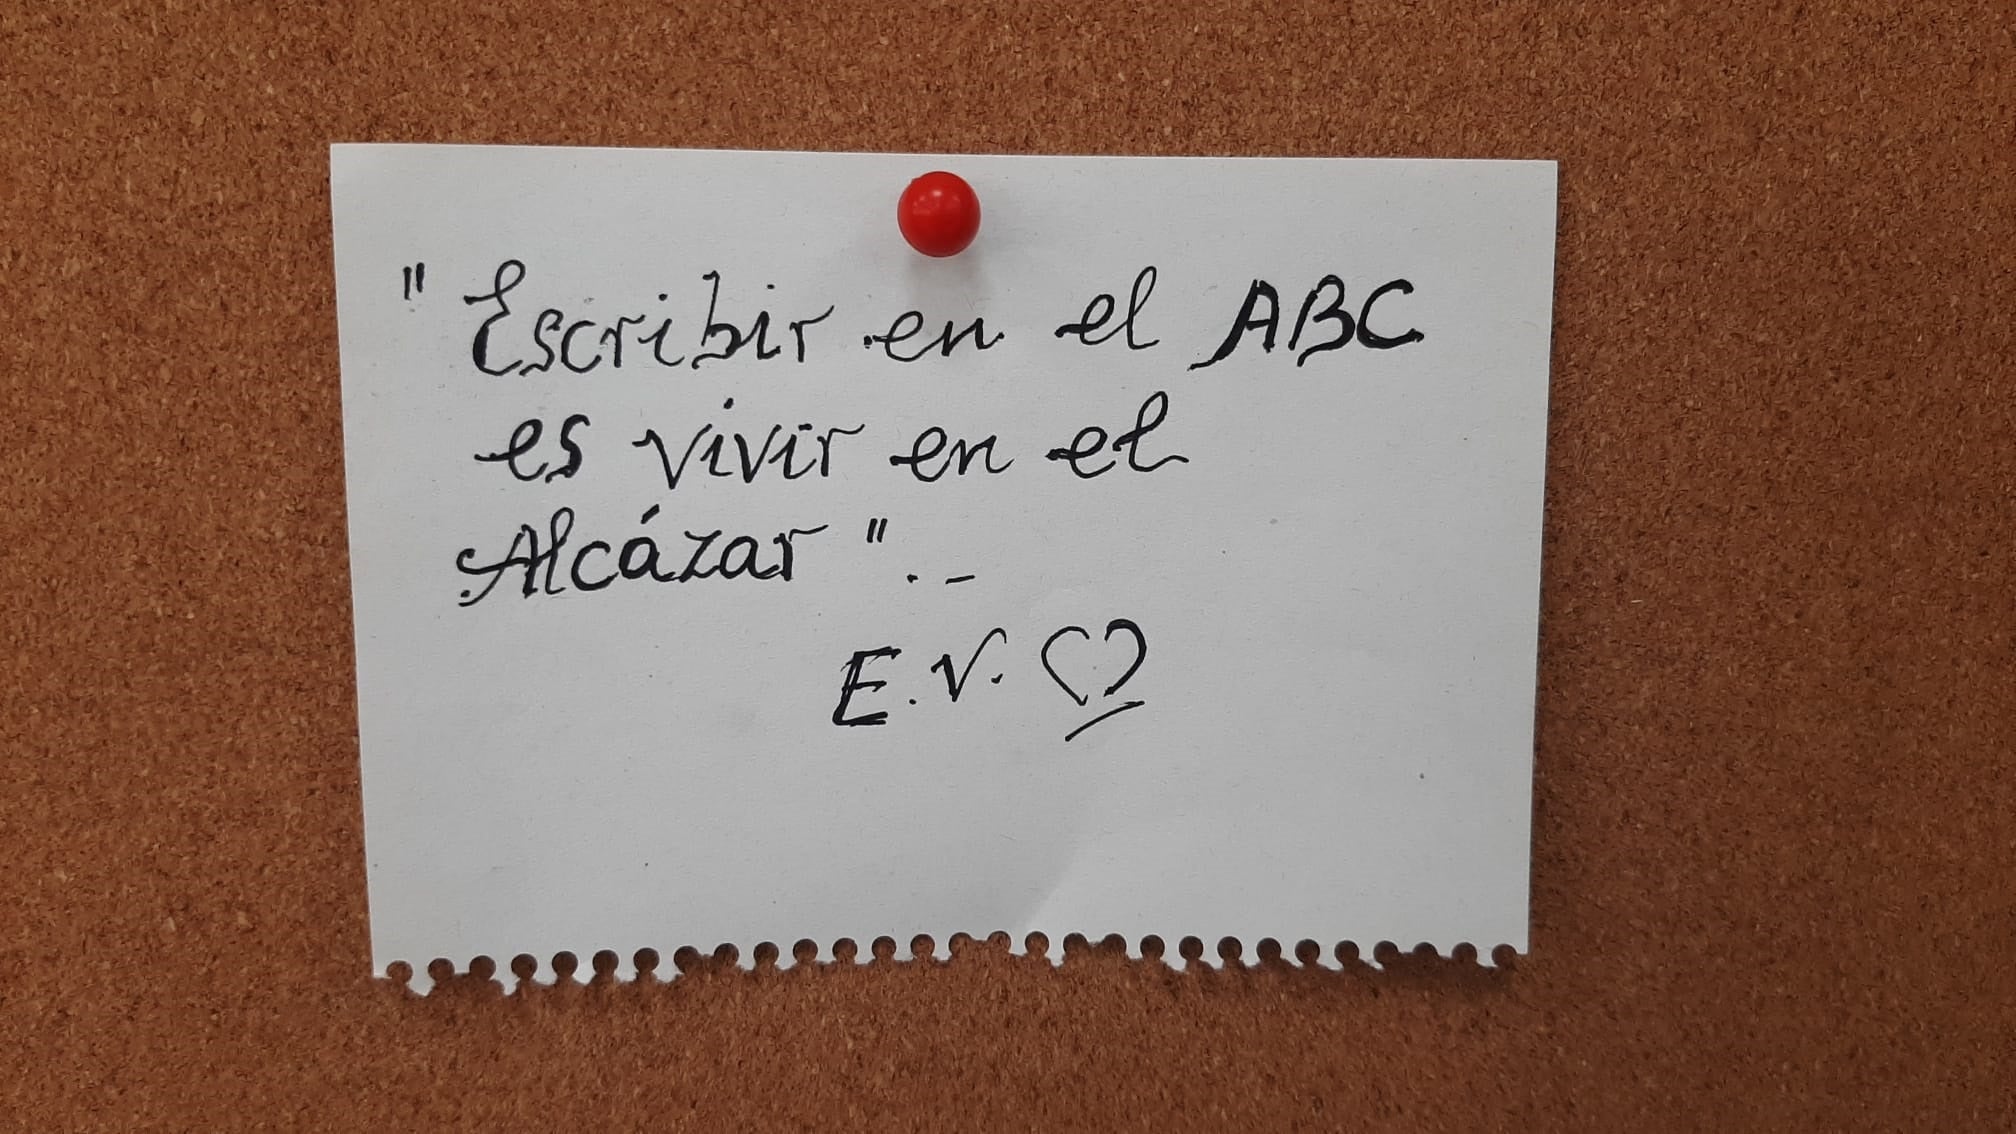 "Escribir en el ABC
es vivir en el
Alcázar".-
E.V.♡